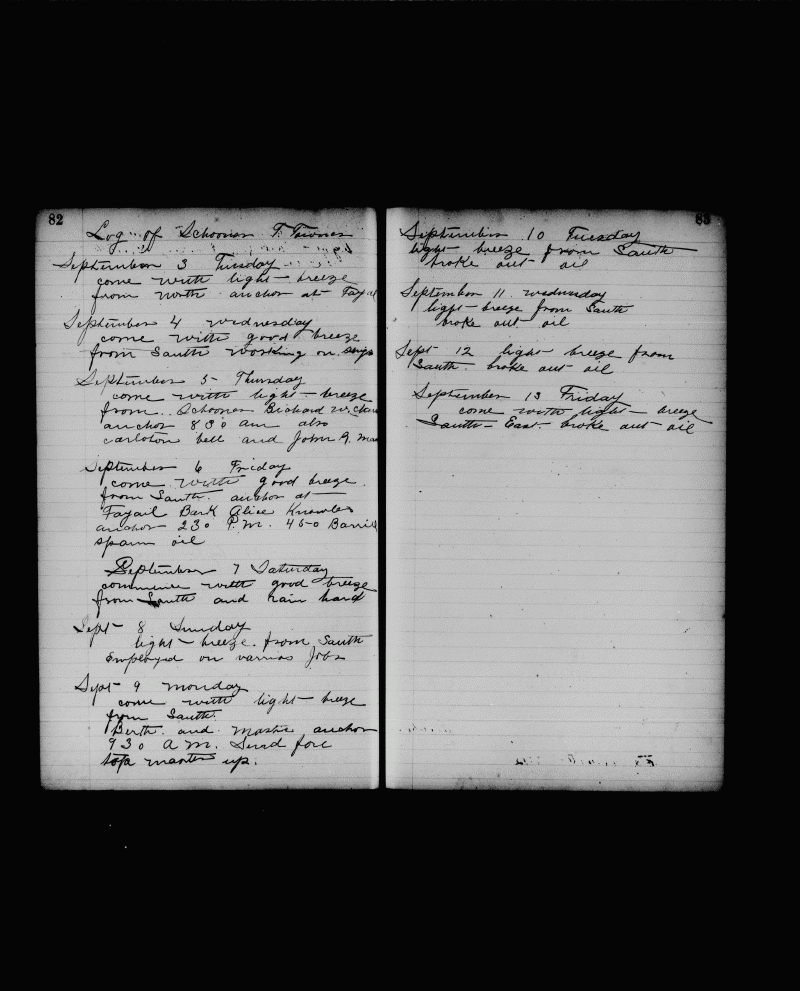 82
Log of Schooner T. Towner
September 3 Tuesday
come with light breeze
from north anchor at Fayal
September 4 wednesday
come with good breeze
from South working on ship
September 5 Thursday
come with light breeze
from. Schooner Richard W. Clark
anchor 8 30 am also
carlston bell and John R. Man
September 6 Friday
come with good breeze.
from South. anchor at
Fayail Bark Alice Knowles
anchor 230 P.M. 450 Barrils
sparm oil
September 7 Saturday
commence with good breeze
from South and rain hard
Sept 8 Sunday
light breeze. from South
Employed on varrius Jobs
Sept 9 monday
come with light breeze
from South.
Berth. and Masha anchor
930 A M. Send fore
top master up.
83
September 10 Tuesday
light breeze from South
broke out oil
September 11 wednesday
light breeze from South
broke out oil
Sept 12 light breeze from
South broke out oil
September 13 Friday
come with light breeze
South East broke out oil